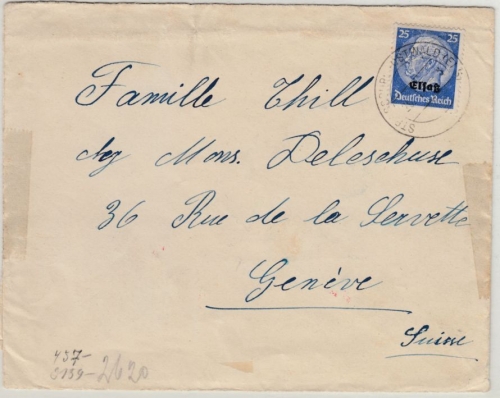 25 25
Elsaß
Deutsches Reich
Famille Thill
chez Mons. Deleschuse
36 Rue de la Servette
Genève
Suisse
437-
3139-2620